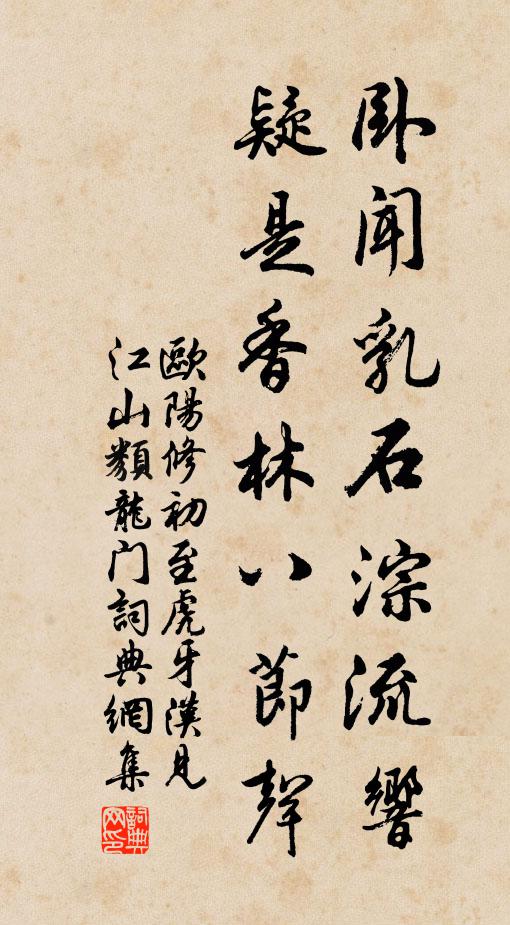 卧闻乳石淙流響
疑是香林八節聲
歐陽修初至虎牙漢見
江山類龍门詞典網集
詞典网印